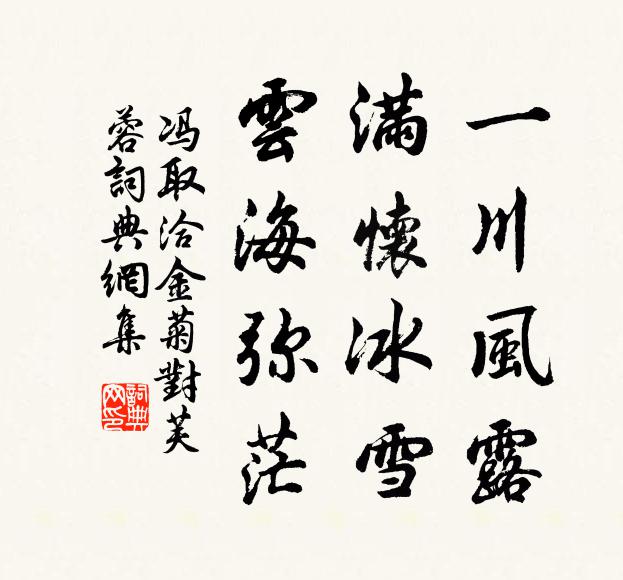 一川風露
滿懷冰雪
雲海弥茫
冯取洽金菊對芙
蓉詞典網集
詞典
网印